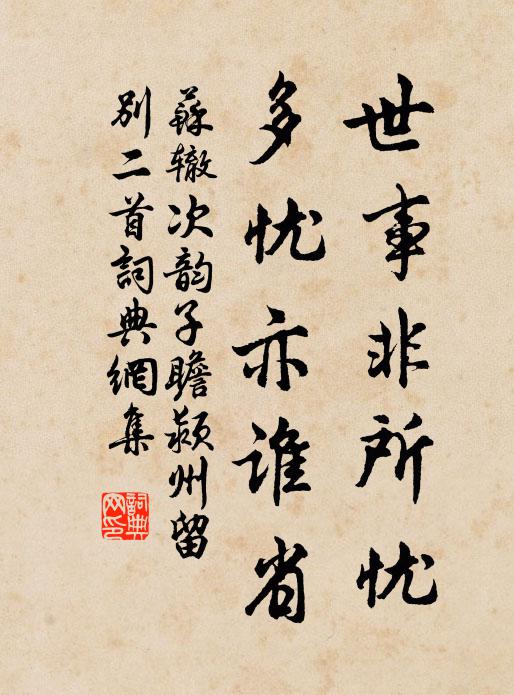 世事非所忧
多忧亦谁省
蘇辙次韵子瞻颍州留
别二首詞典網集
詞典网印